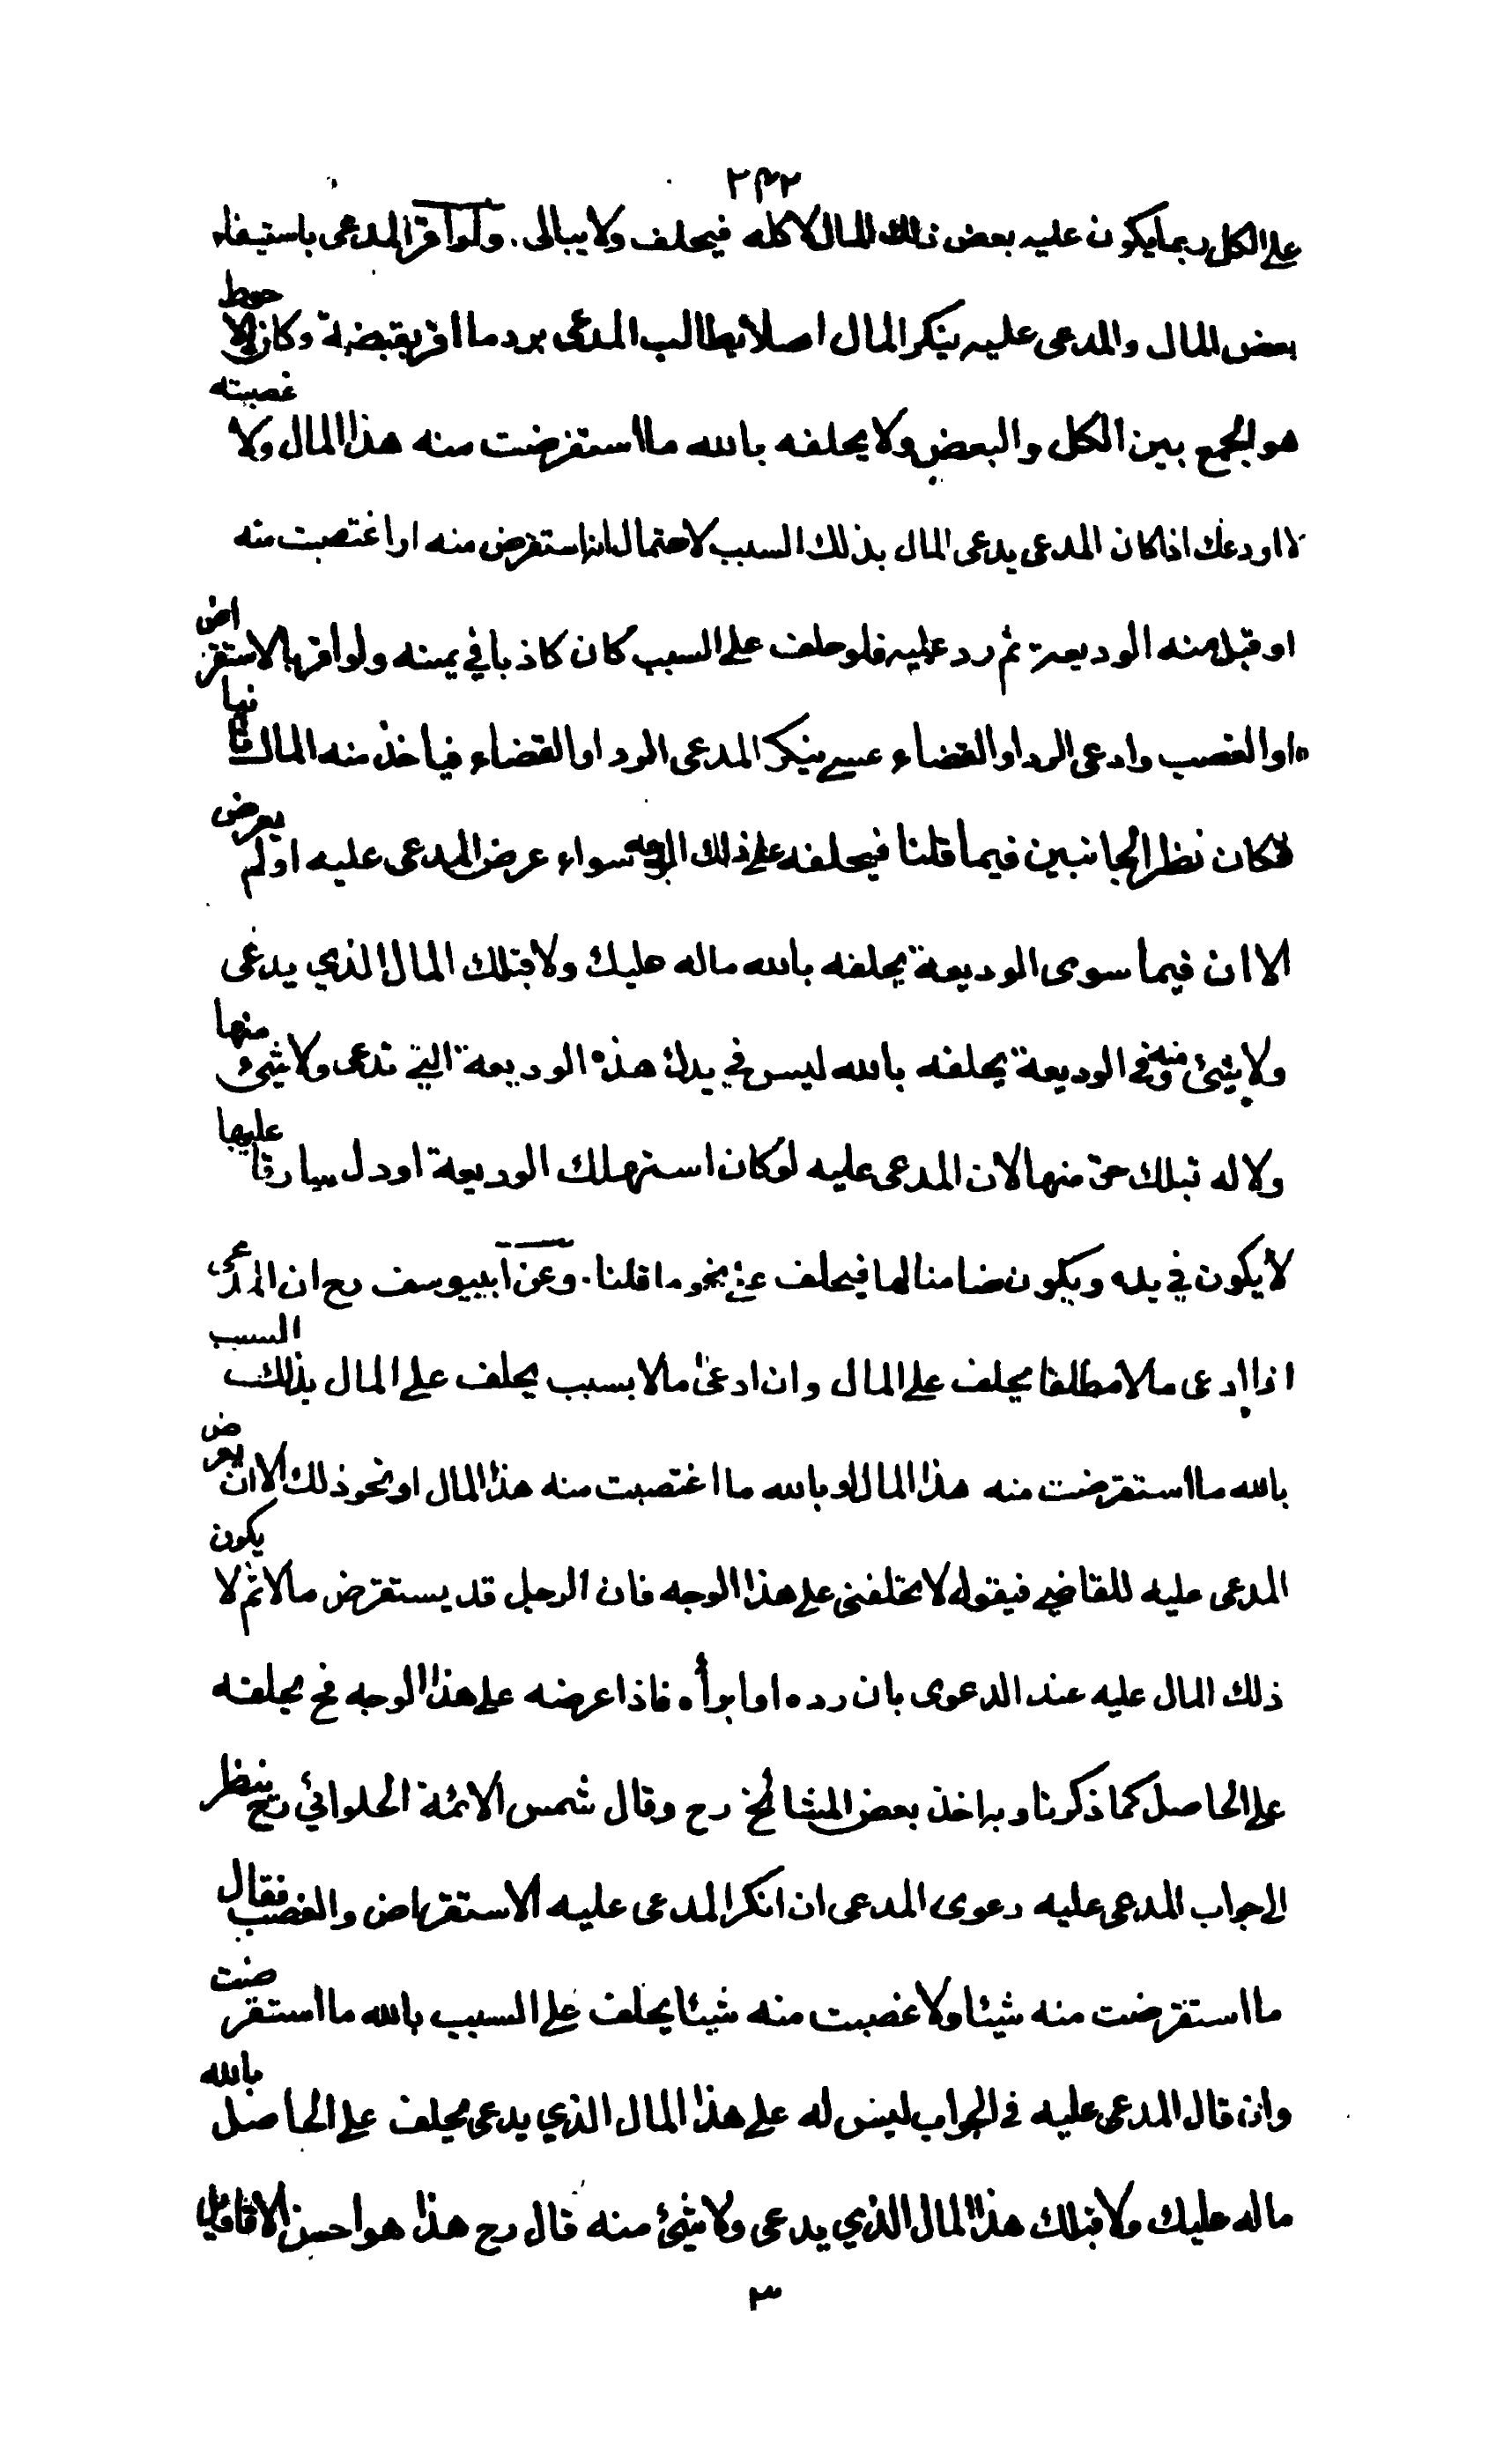 ٢٣٢
على الكل ربما يكون عليه بعض ذلك المال لا كله فيحلف ولا يبالى . ولو اقر المدعى باستيفاء
بعض المال والمدعى عليه ينكر المال اصلا يطالب المدعى برد ما اقر بقبضة وكان الاحوط
هو الجمع بين الكل والبعض ولا يحلفه بالله ما استقرضت منه هذا المال ولا غصبته
لا اودعك اذا كان المدعى يدعى المال بذلك السبب لاحتمال انه استقرض منه او اغتصبت منه
او قبل منه الوديعة ثم رد عليه فلو حلف على السبب كان كاذبا في يمينه ولو اقر بالاستقراض
او الغصب وادعى الرد او القضاء عسى ينكر المدعى الرد او القضاء فياخذ منه المال ثانيا
فكان نظر الجانبين فيما قلنا فيحلفه على ذلك الوجه سواء عرض المدعى عليه او لم يعرض
الا ان فيما سوى الوديعة يحلفه بالله ماله عليك ولا قبلك المال الذي يدعى
ولا شئ منه وفى الوديعة يحلفه بالله ليس في يدك هذه الوديعة التي تدعى ولا شئ منها
ولا له قبلك حق منها لان المدعى عليه لو كان استهلك الوديعة او دل سارقا عليها
لا يكون في يده ويكون ضامنا لها فيحلف على نحو ما قلنا . وعن ابييوسف رح ان المدعى
اذا ادعى مالا مطلقا يحلف على المال وان ادعى مالا بسبب يحلف على المال بذلك السبب
بالله ما استقرضت منه هذا المال او بالله ما اغتصبت منه هذا المال او نحو ذلك الا ان يعرض
المدعى عليه للقاضي فيقول لا تحلفنى على هذا الوجه فان الرجل قد يستقرض مالا ثم لا يكون
ذلك المال عليه عند الدعوى بان رده او ابرأه فاذا عرضه على هذا الوجه فح يحلفه
على الحاصل كما ذكرنا وبه اخذ بعض المشائخ رح وقال شمس الائمة الحلوائي رح ينظر
الى جواب المدعى عليه دعوى المدعى ان انكر المدعى عليه الاستقراض والغصب فقال
ما استقرضت منه شيئا ولا غصبت منه شيئا يحلف على السبب بالله ما استقرضت
وان قال المدعى عليه فى الجواب ليس له على هذا المال الذي يدعى يحلف على الحاصل بالله
ماله عليك ولا قبلك هذا المال الذي يدعى ولا شئ منه قال رح هذا هو احسن الاقاويل
٣